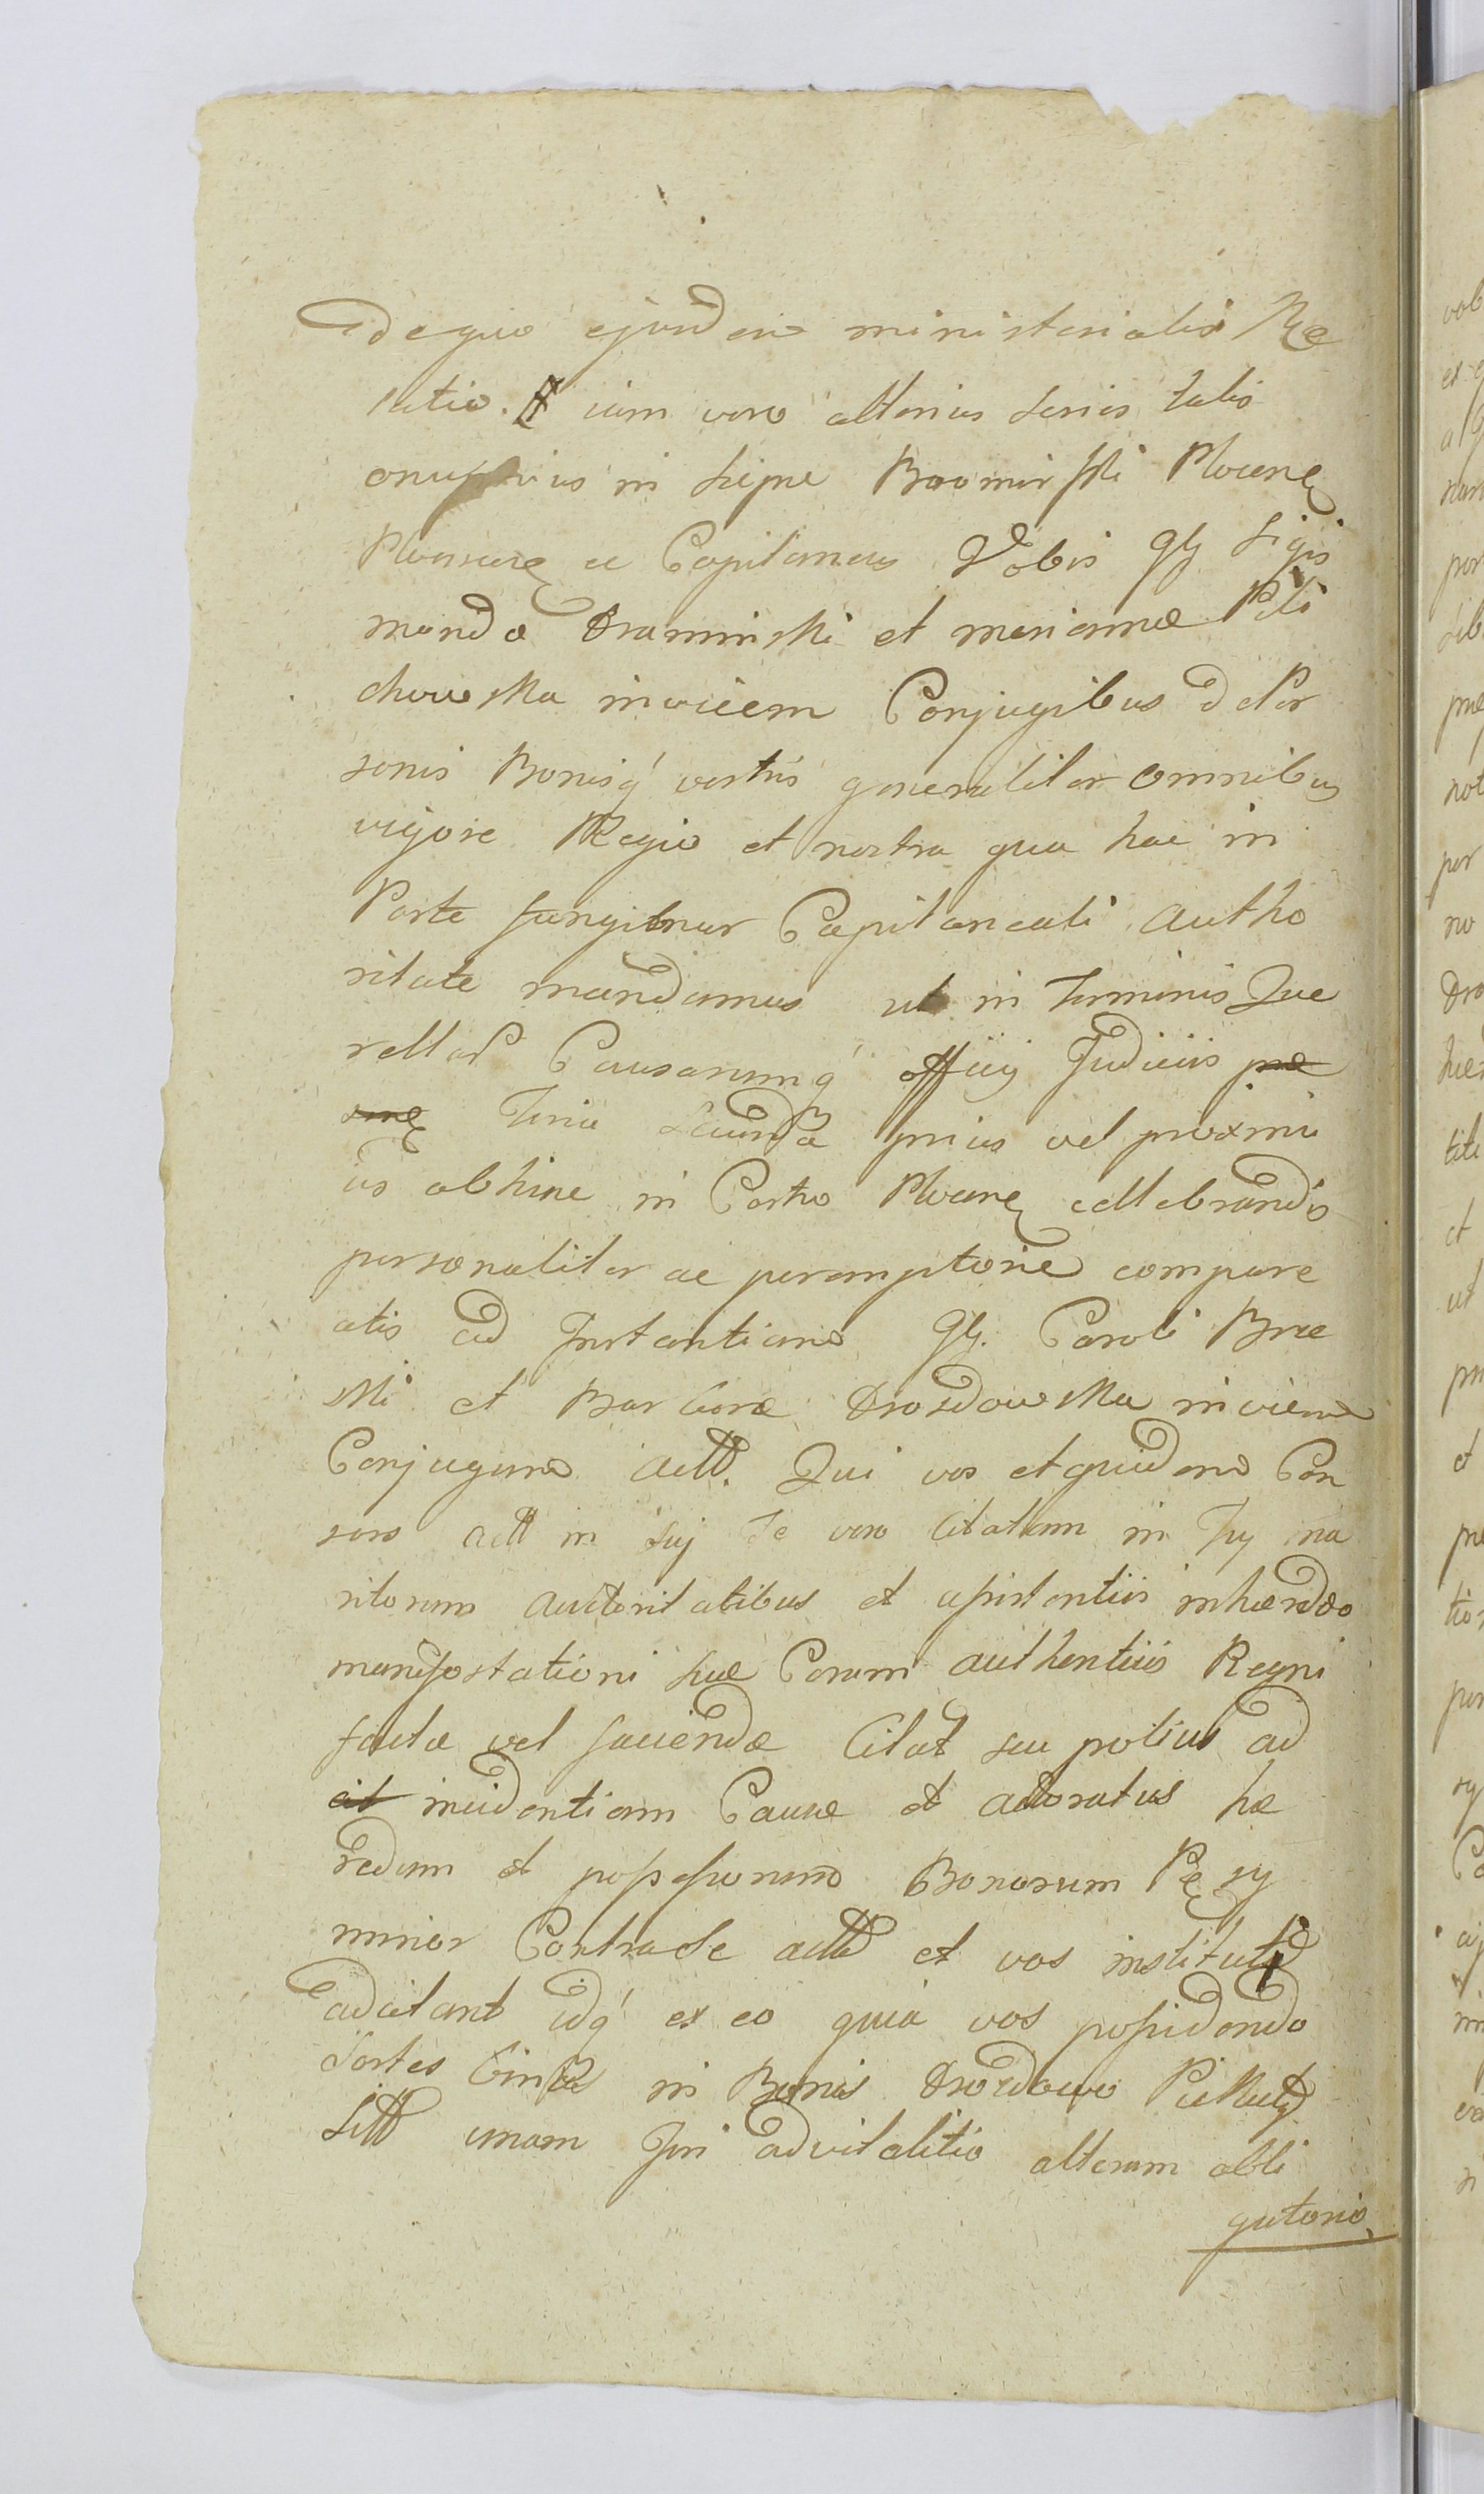 de quo ejusdem ministerialis Re
latio. iam vero alterius series talis
in Siepne Boromirski Plocen
Plonscens ac Capitaneus Vobis Gg Sigis
mundo Draminski et Mariannæ Pili
chowska invicem Conjugibus de Per
sonis Bonisq vestris generaliter omnibus
vigore Regia et nostra qua hac in
Parte fungimur Capitaneali Autho
ritate mandamus ut in Terminis Que
rellar Causarumq officij Judiciis præ
sens Feria Secunda prius vel proximi
us abhinc in Castro Plocens cellebrandis
personaliter ac peremptorie compare
atis ad Instantiam Gg. Caroli Brze
ski et Barbaræ Drozdowska invicem
Conjugum Actt. Qui vos et quidem Con
sors Actt in Sui Te vero Citatam in Tuj ma
ritorum Auctoritatibus et assistentiis inhærendo
manifestationi suæ Coram Authenticis Regni
factæ vel faciendæ Citat seu potius ad
cit incidentiam Causæ et Actoratus hæ
redum et possessorum Bonorum Pęsy
minor Contra se Actt et vos institut
adcitant idq ex eo quia vos possidendo
Sortes binas in Bonis Drozdowo Piekuty
Sitt unam Juri advitalitio alteram obli
gatorio